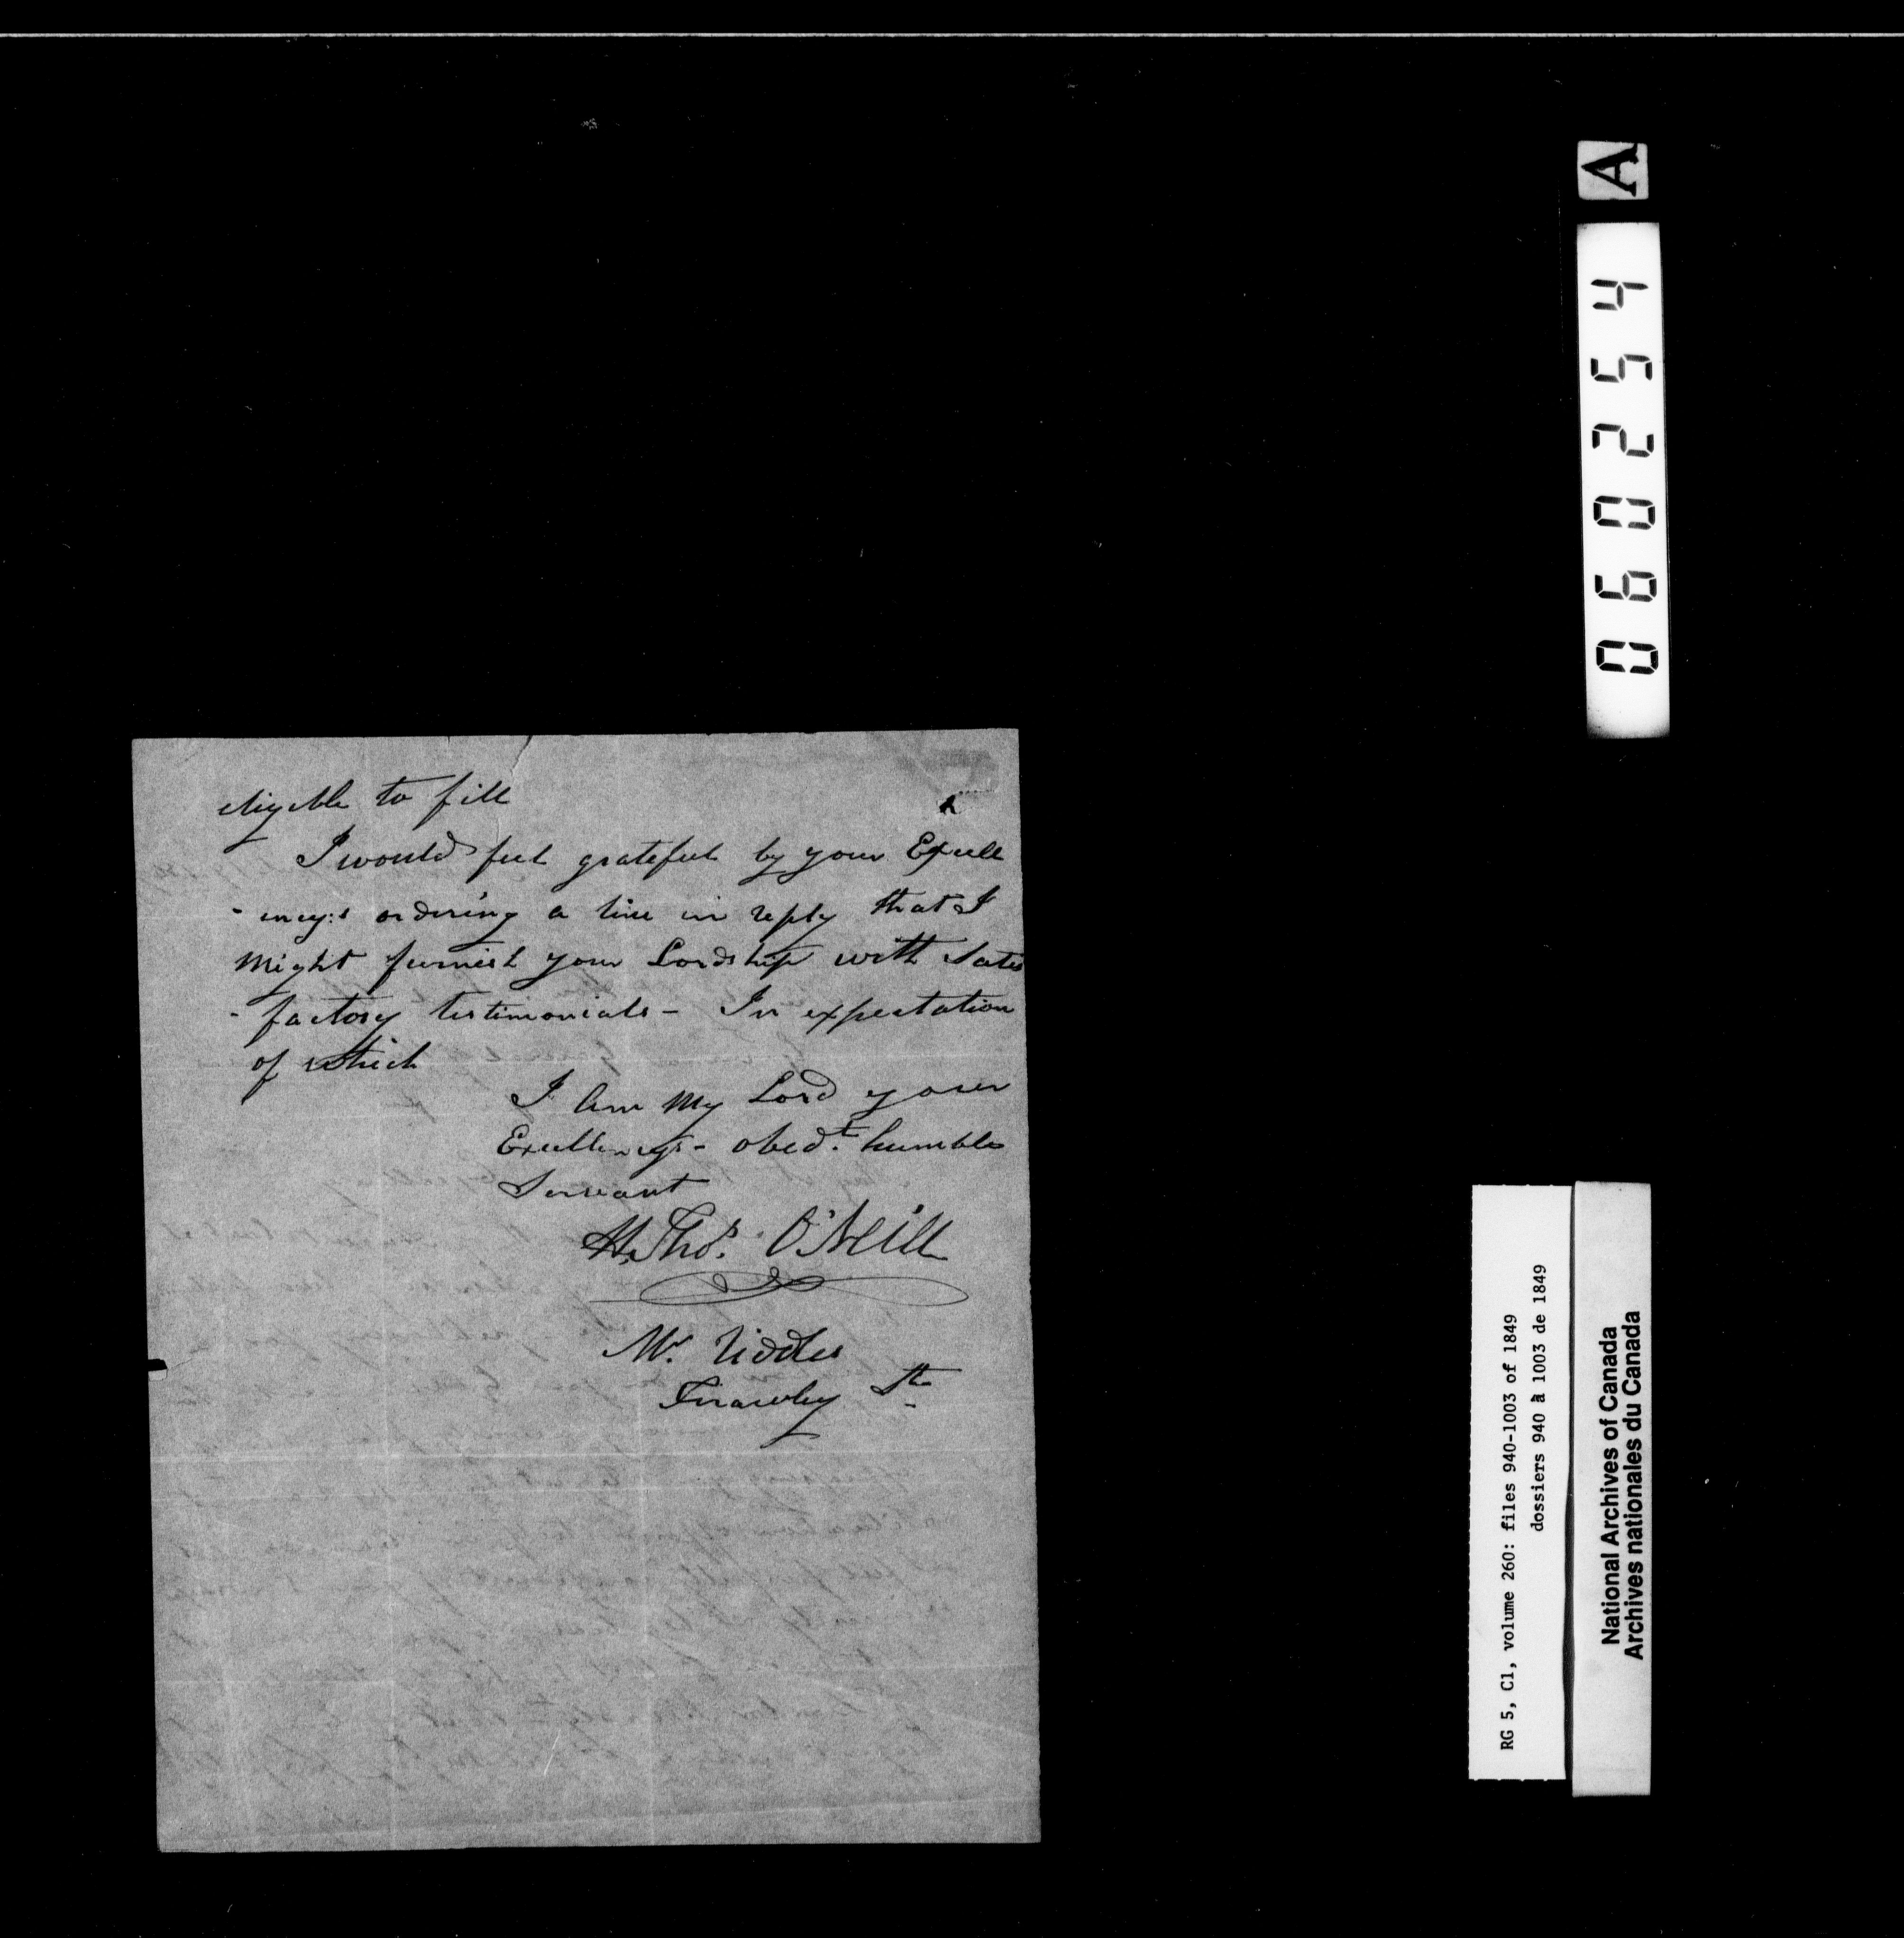 eligeble to fill
I would feel grateful by your Excell
- ency:s ordering a line in reply that I
Might furnish your Lordship with Satis
- factory testimonials - In expectation
of which
I Am My Lord your
Excellencys - obedt. humble
Servant
H. Thos. O'Neill
Mr.
St
A
060254
RG 5, C1, volume 260: files 940-1003 of 1849
dossiers 940 à 1003 de 1849
National Archives of Canada
Archives nationales du Canada